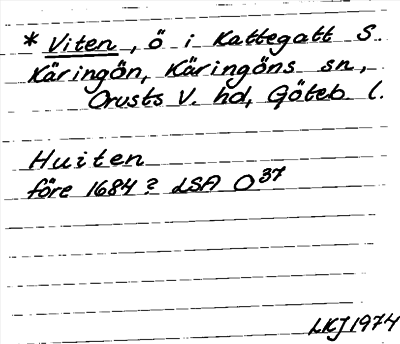 * Viten, ö i Kattegatt S.
Käringön, Käringöns sn,
Orusts V. hd, Göteb. l.
Huiten
före 1684? LSA O37
LKJ 1974